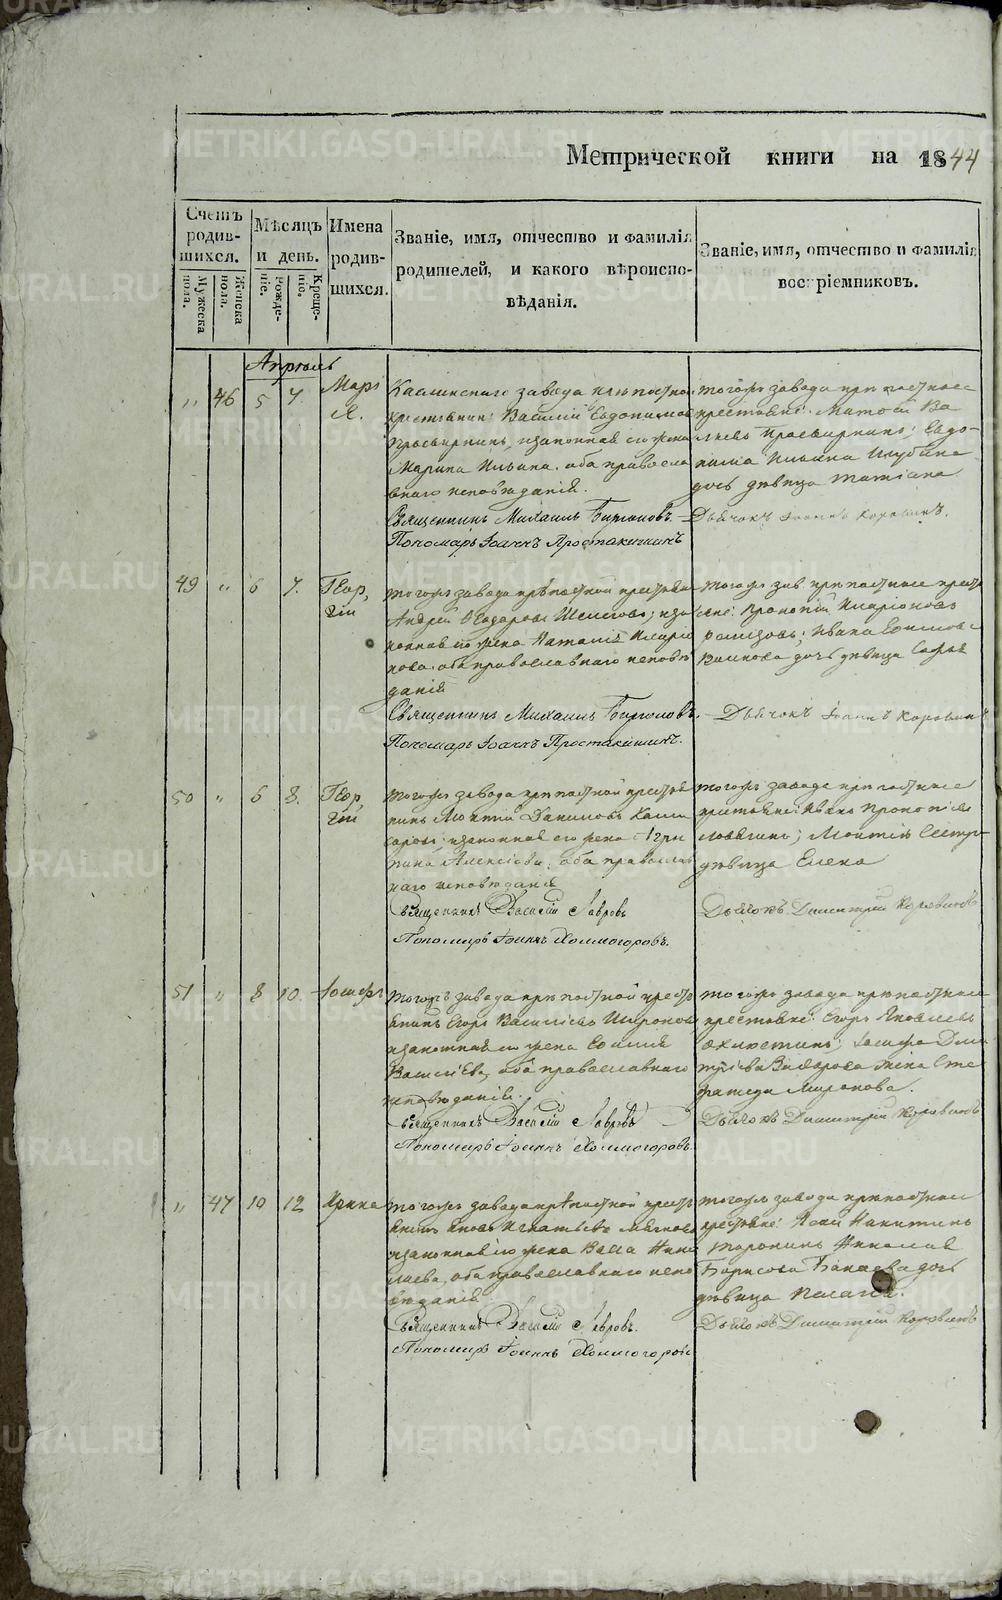 Метрической книги на 1844
Счетъ родив-шихся.
Мѣсяцъ и день.
Имена родив-шихся.
Званіе, имя, отчество и фамилія
родителей, и какого вѣроиспо-
вѣданія.
Званіе, имя, отчество и фамилія
воспріемниковъ.
Мужеска пола.
Женска пола.
Рожде-ніе.
Креще-ніе.
Апрель
„ 46 5 7. Марі
я.
Каслинскаго завода крѣпостной
крестьянинъ Василій Евдокимовъ
Просвирнинъ, и законная его жена
Марина Ильина. оба правосла
внаго исповѣданія.
Священникъ Михаилъ
Пономарь Іоаннъ Простакишинъ
тогожъ завода крѣпостные
крестьяне: Матвей Ва
сильевъ Просвирнинъ; Евдо-
кима Ильина
дочь дѣвица Татіана
Дьячокъ Іоаннъ Коровинъ.
49 „ 6 7. Геор,
гій
тогожъ завода крѣпостной крестьян
Андрей Ѳедоровъ и за
конная его жена Наталія Иларіо
нова. оба православнаго исповѣ
данія
Священникъ Михаилъ
Пономарь Іоаннъ Простакишинъ.
тогожъ зав. крѣпостные кресть
яне: Прокопій Иларіоновъ
Ивана
дочь дѣвица Софья
Дьячокъ Іоаннъ Коровинъ
50 „ 6 8. Геор,
гій
тогожъ завода крѣпостной крестья
нинъ Даниловъ
законная его жена Агри
пина Алексіева. оба православ
наго исповѣданія
Священникъ Василій Лавровъ
Пономарь Іоаннъ Холмогоровъ.
тогожъ завода крѣпостные
крестьяне: Иванъ Прокопіевъ
дѣвица Елена
Дьячокъ Димитрій Коровинъ
51 „ 8 10. Іосифъ
тогожъ завода крѣпостной кресть
янинъ Егоръ Василіевъ Широковъ
и законная его жена
Василіева, оба православнаго
исповѣданія.
Священникъ Василій Лавровъ
Пономарь Іоаннъ Холмогоровъ.
тогожъ завода крѣпостные
крестьяне: Егоръ Яковлевъ
Іосифа Дми
тріева Захарова жена Сте
фанида Миронова.
Дьячокъ Димитрій Коровинъ
„ 47 10 12 Ирина
тогожъ завода крѣпостной кресть
янинъ Игнатьевъ
и законная его жена Васса Нико
лаева, оба православнаго испо
вѣданія
Священникъ Василій Лавровъ.
Пономарь Іоаннъ Холмогоровъ
тогожъ завода крѣпостные
крестьяне: Никитинъ
Николая
Борисова дочь
дѣвица Пелагія.
Дьячокъ Димитрій Коровинъ
METRIKI.GASO-URAL.RU